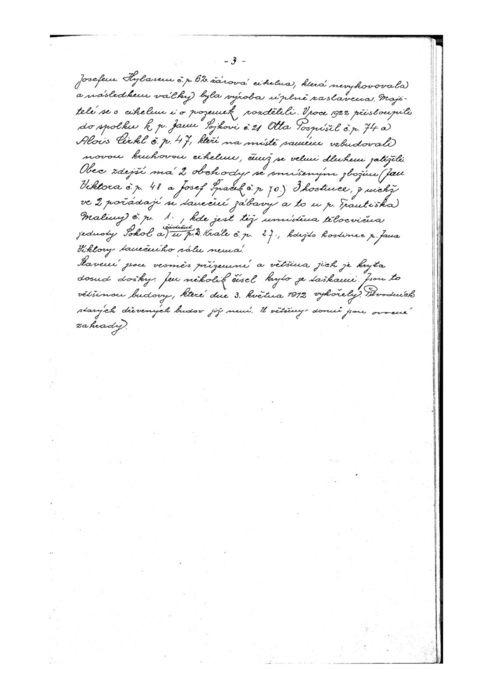 - 3 -
Josefem Hylasem č.p. 62. žárová cihelna, která nevyhovovala
a následkem války byla výroba úplně zastavena. Maji-
telé se o cihelnu i o pozemek rozdělili. V roce 1922 přistoupili
do spolku k p. Janu Sýkovi č 21 Otta Pospíšil č.p. 74 a
Alois Cirkl č.p. 47, kteří na místě samém vybudovali
novou kruhovou cihelnu, čímž se velmi dluhem zatížili.
Obec zdejší má 2 obchody se smíšeným zbožím (Jan
Viktora č.p. 48 a Josef Špaček č p 70.) 3 hostince, z nichž
ve 2 pořádají se taneční zábavy a to u p. Františka
Maliny č. p. 1., kde jest též umístěna tělocvična
jednoty Sokol a u p. Krále č. p. 27, kdežto hostinec p. Jana
Viktory tanečního sálu nemá.
Stavení jsou vesměs přízemní a většina jich je kryta
dosud došky. Jen několik čísel kryto je taškami. Jsou to
většinou budovy, které dne 3. května 1912 vyhořely. Původních
starých dřevěných budov již není. U většiny domů jsou ovocné
zahrady.